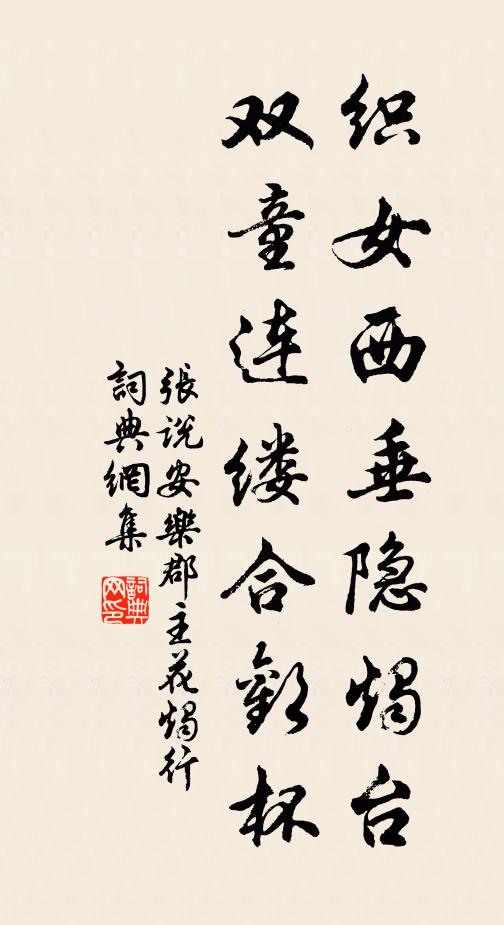 织女西垂隐烛台
双童连缕合歓杯
張说安樂郡主花燭行
詞典網集
詞典網印